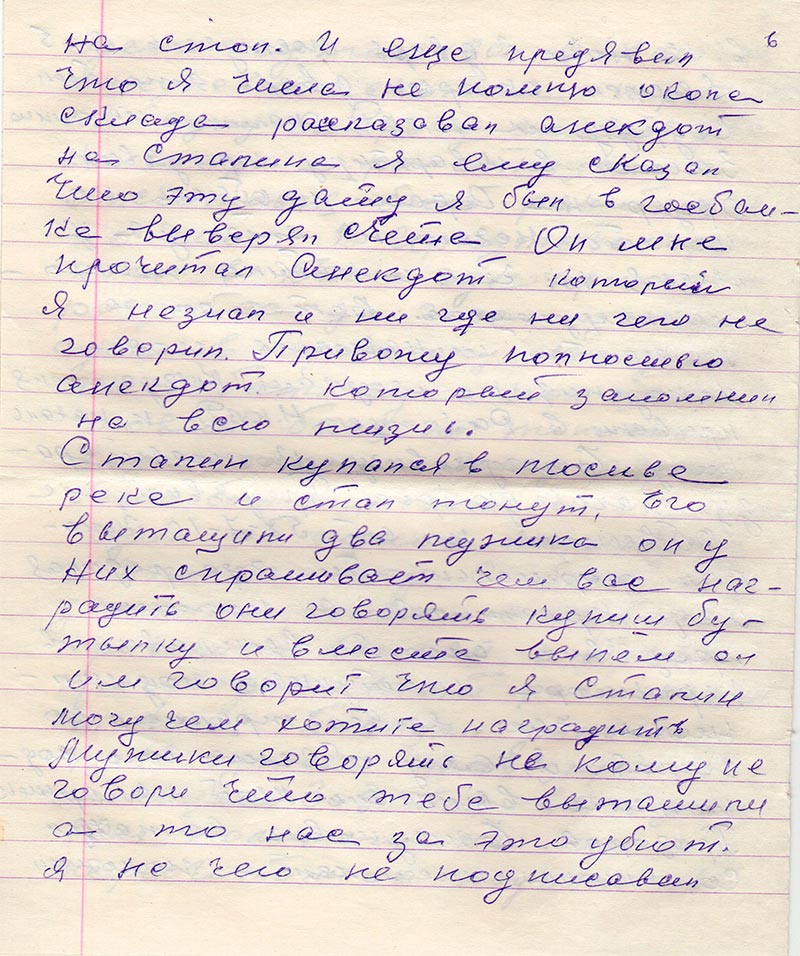 6
на стол. И еще предявил
что я числа не помню окола
склада рассказавал анекдот
на Сталина я ему сказал
что эту дату я был в госбан-
ке выверял счета Он мне
прочитал Анекдот который
я незнал и ни где ни чего не
говорил. Привожу полностью
анекдот. который запомнил
на всю жизнь.
Сталин купался в Москве
реке и стал тонут, Его
вытащили два мужика он у
них спрашивает чем вас наг-
радить они говорять купиш бу-
тылку и вместе выпем он
им говорит что я Сталин
могу чем хотите наградить
Мужики говорять не кому не
говори что тебе выташили
а то нас за это убют.
я не чего не подписавал